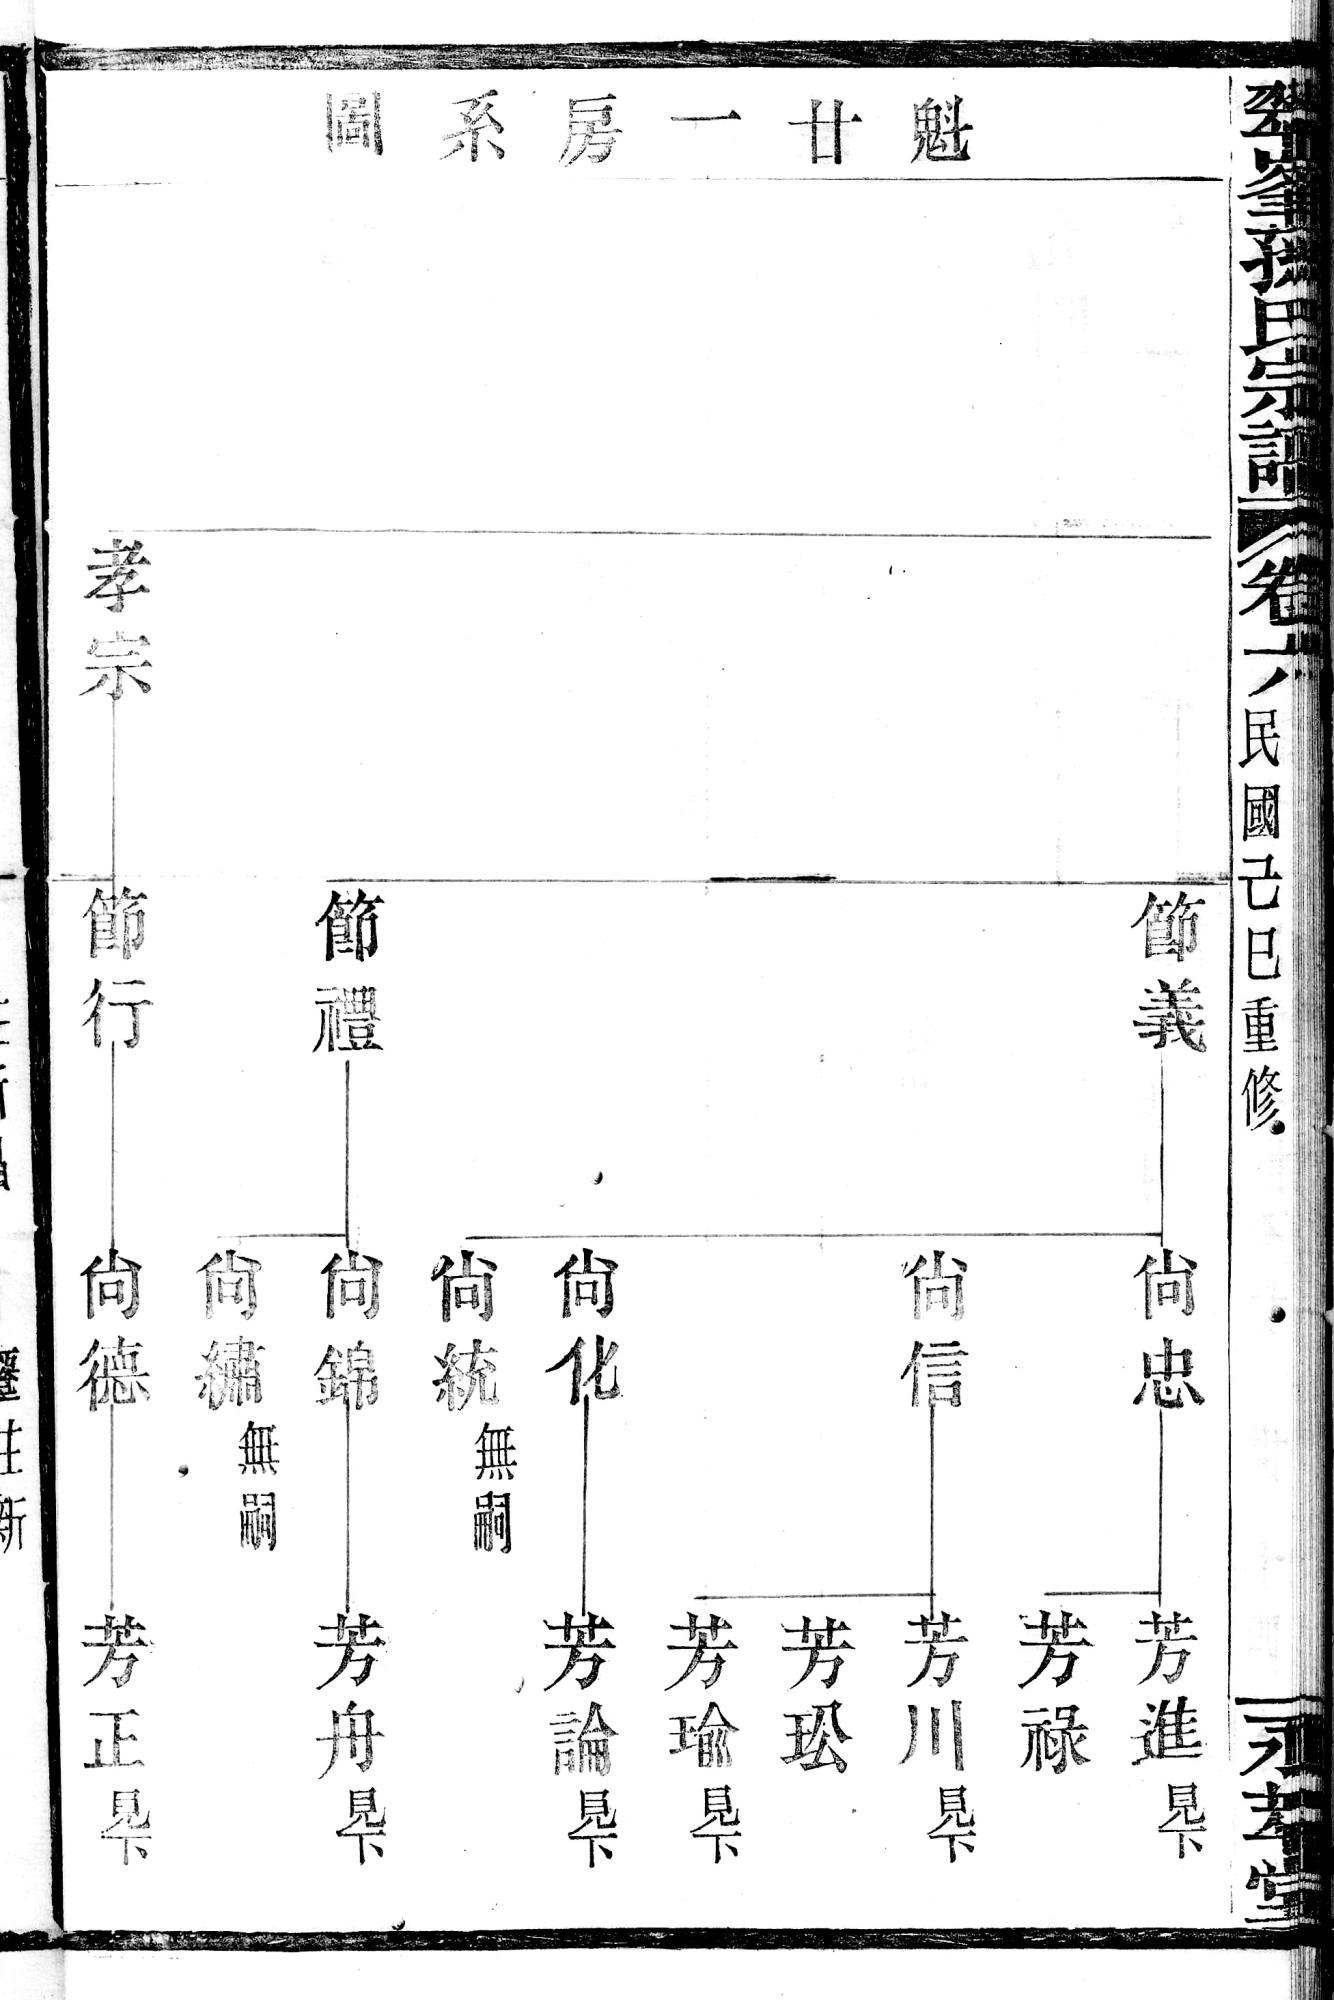 孫氏宗譜
卷六
民國己巳重修
永孝堂
魁廿一房系圖
孝宗
節義
節禮
節行
尙忠
尙信
尙化
尙統 無嗣
尙錦
尙繡 無嗣
尙德
芳進 見下
芳祿
芳川 見下
芳玜
芳瑜 見下
芳論 見下
芳舟 見下
芳正 見下